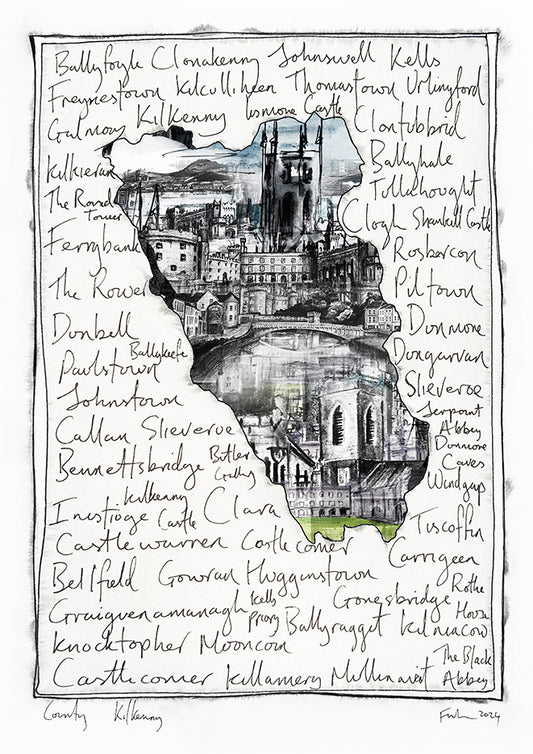 Ballyfoyle Clonakenny Johnswell Kells
Freynestown Kilculliheen Thomastown Urlingford
Galmoy Kilkenny Lismore Castle Clontubbrid
Kilkieran Ballyhale
The Round Tower Tullahought
Clogh Shankill Castle
Ferrybank Rosbercon
The Rower Piltown
Dunbell Dunmore
Ballykeefe Dungarvan
Paulstown Slieverue
Johnstown Jerpoint Abbey
Callan Slieverue Dunmore Caves
Bennettsbridge Butler Gallery Windgap
Inistioge Kilkenny Castle Clara Tiscoffin
Castlewarren Castlecomer Carrigeen
Bellfield Gowran Hugginstown Rothe House
Graiguenamanagh Kells Priory Ballyragget Goresbridge Kilmacow
Knocktopher Mooncoin The Black Abbey
Castlecomer Killamery Mullinavat
County Kilkenny 2024